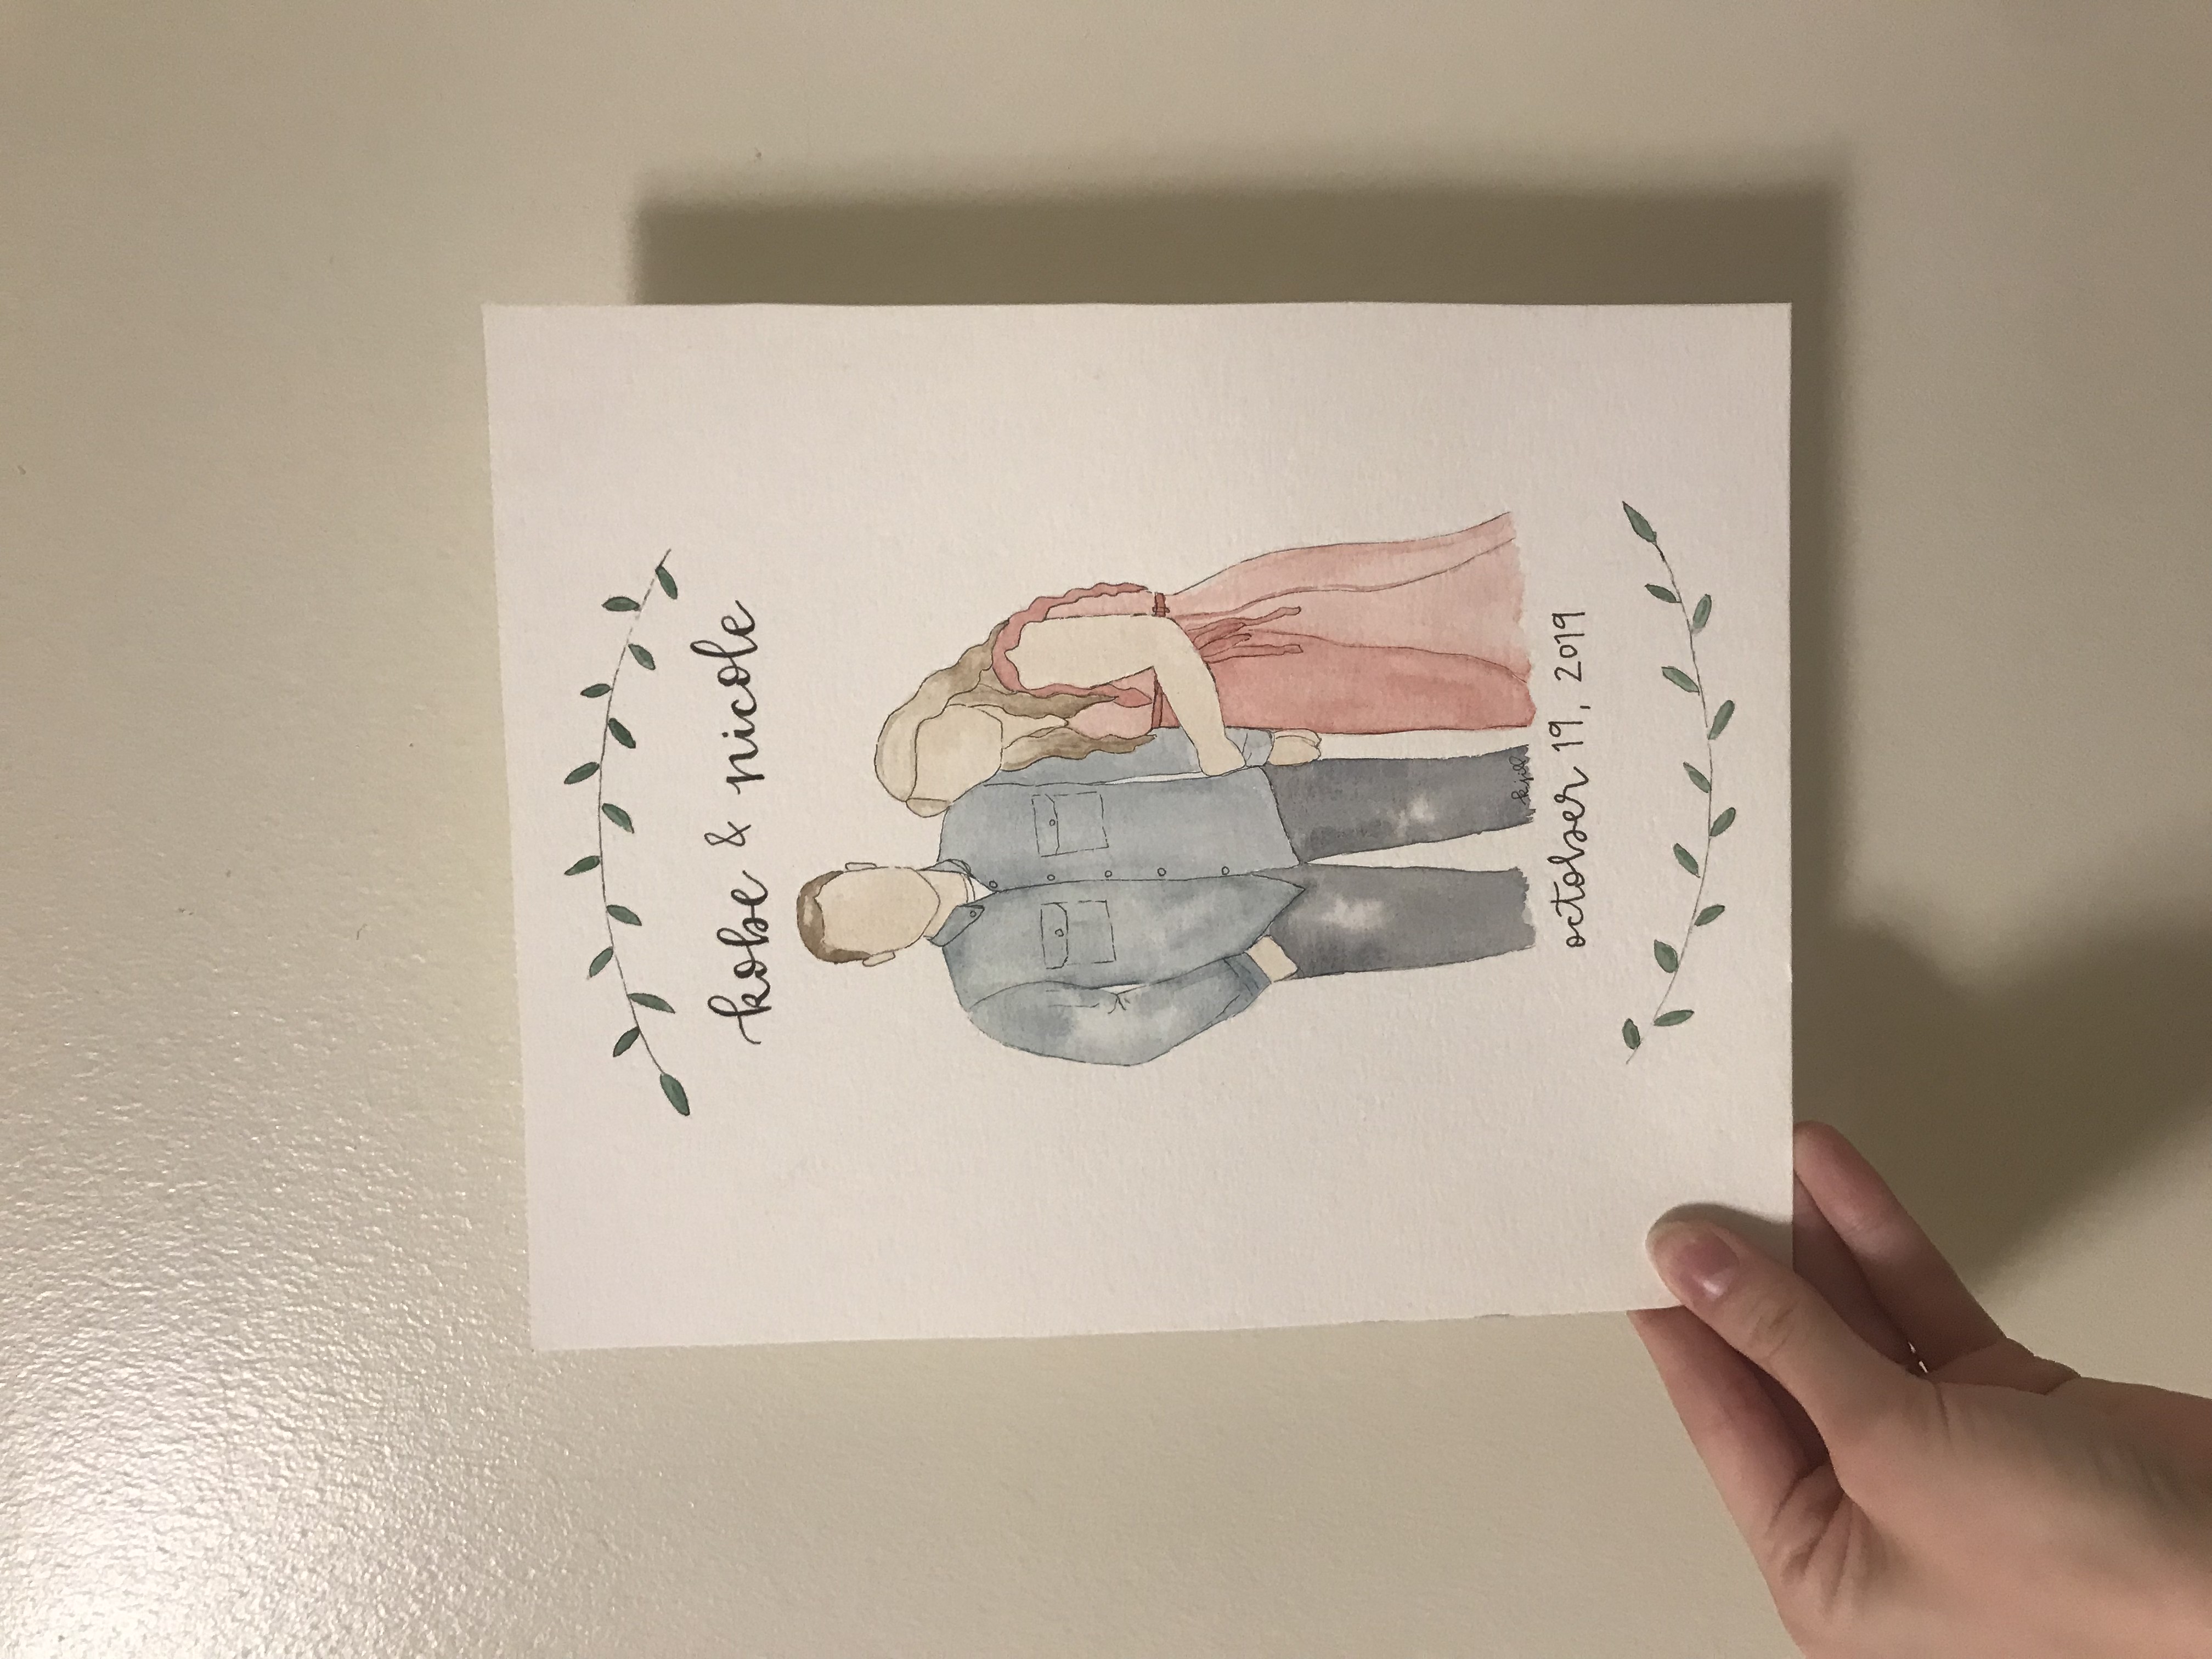 kobe & nicole
kjill
october 19, 2019